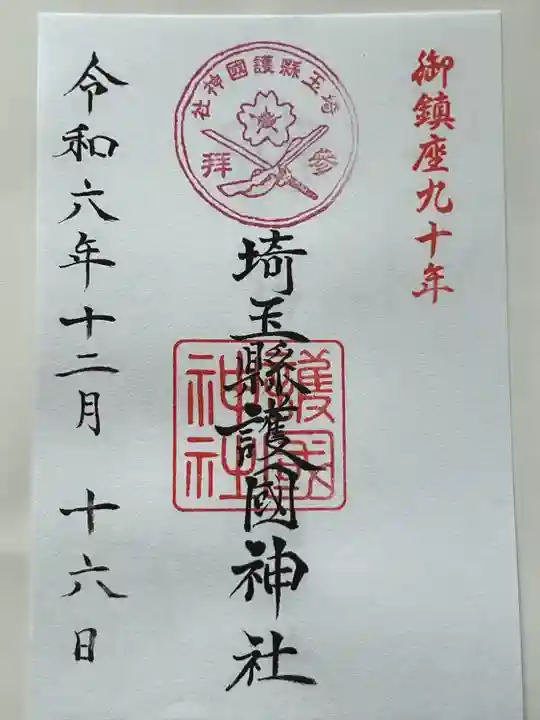 御鎮座九十年
埼玉縣護國神社
参拜
埼玉縣護國神社
護國神社
令和六年十二月 十六日